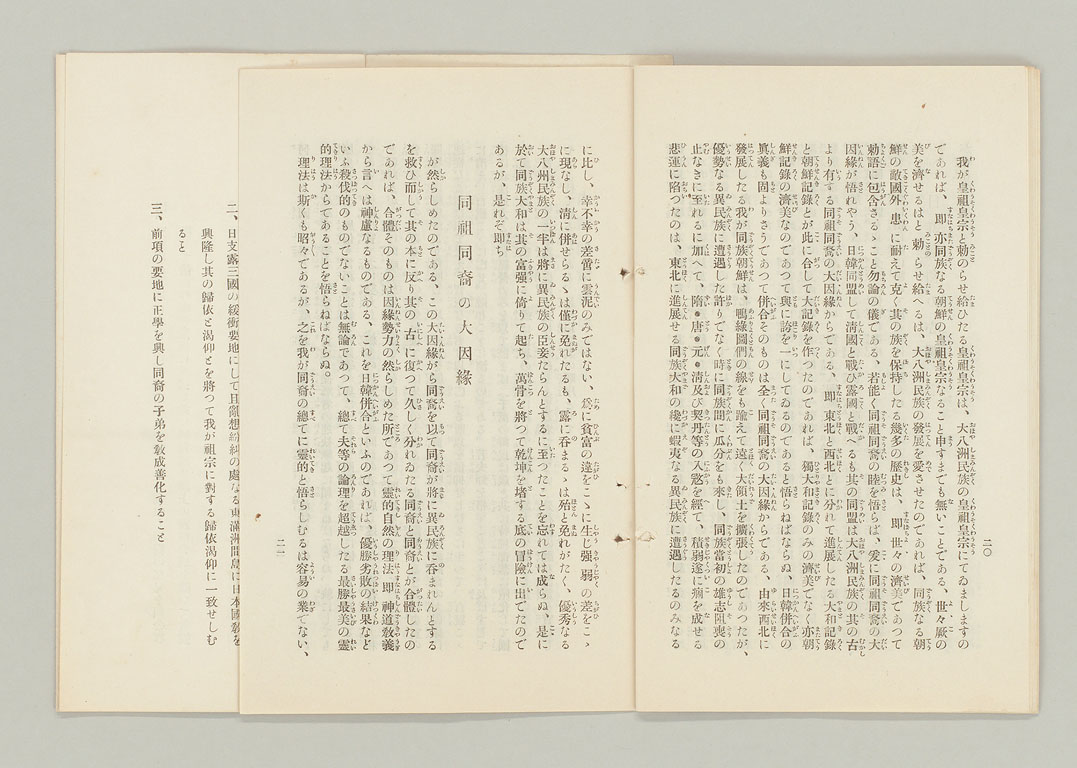 二〇
我が皇祖皇宗と勅のらせ給ひたる皇祖皇宗は、大八洲民族の皇祖皇宗にてゐましますの
であれば、即亦同族なる朝鮮の皇祖皇宗なること申すまでも無いことである、世々厥の
美を濟せるはと勅らせ給へるは、大八洲民族の發展を愛でさせたのであれば、同族なる朝
鮮の敵國外患に耐えて克く其の族を保持したる幾多の歴史は、即世々の濟美であつて
勅語に包含さるゝこと勿論の儀である、若能く同祖同裔の睦を悟らば、爰に同祖同裔の大
因縁が悟れやう、日韓同盟して清國と戰ひ露國と戰へるも其の同盟は大八洲民族の其の古
より有する同祖同裔の大因縁からである、即東北と西北とに分れて進展したる大和記錄
と朝鮮記錄とが此に合して大記錄を作つたのであれば、獨大和記錄のみの濟美でなく亦朝
鮮記錄の濟美なのであつて與に誇を一にしてゐるのであると悟らねばならぬ、日韓併合の
眞義も固よりさうであつて併合そのものは全く同祖同裔の大因縁からである、由來西北に
發展した我が同族朝鮮は、鴨綠圖們の線をも踰えて遠く大領土を擴張したのであつたが、
優勢なる異民族に遭遇した許りでなく時に同族間に瓜分をも來し、同族當初の雄志阻喪の
止なきに至れるに加へて、隋・唐・元・清及び契丹等の入寇を經て、積弱遂に痼を成せる
悲運に陷つたのは、東北に進展せる同族大和の纔に蝦夷なる異民族に遭遇したるのみなる
に比し、幸不幸の差啻に雲泥のみではない、爲に貧富の違をこゝに生じ强弱の差をこゝ
に現なし、清に併せらるゝは僅に免れたるも、露に呑まるゝは殆ど免れがたく、優秀なる
大八州民族の一半は將に異民族の臣妾たらんとするに至つたことを忘れては成らぬ、是に
於て同族大和は其の富强に倚りて起ち、萬骨を將つて乾坤を堵する底の冒險に出でたので
あるが、是れぞ即ち
同祖同裔の大因緣
が然らしめたのである、この大因緣がら同裔を以て同裔が將に異民族に呑まれんとする
を救ひ而して其の本に反り其の古に復つて久しく分れゐたる同裔と同裔とが合體したの
であれば、合體そのものは因緣勢力の然らしめた所であつて靈的自然の理法即神道敎義
から言へは神慮なるものである、これを日韓併合といふのであれば、優勝劣敗の結果など
いふ殺伐的のものでないことは無論であつて、總て夫等の論理を超越したる最勝最美の靈
的理法からであることを悟らねばならぬ。
理法は斯くも昭々であるが、之を我が同裔の總てに靈的と悟らしむるは容易の業でない、
二一
二、日支露三國の緩衝要地にして且亂想紛糾の處なる東滿洲間島に日本國敎を
興隆し其の歸依と渴仰とを將つて我が祖宗に對する歸依渴仰に一致せしむ
ること
三、前項の要地に正學を興し同裔の子弟を敎成善化すること